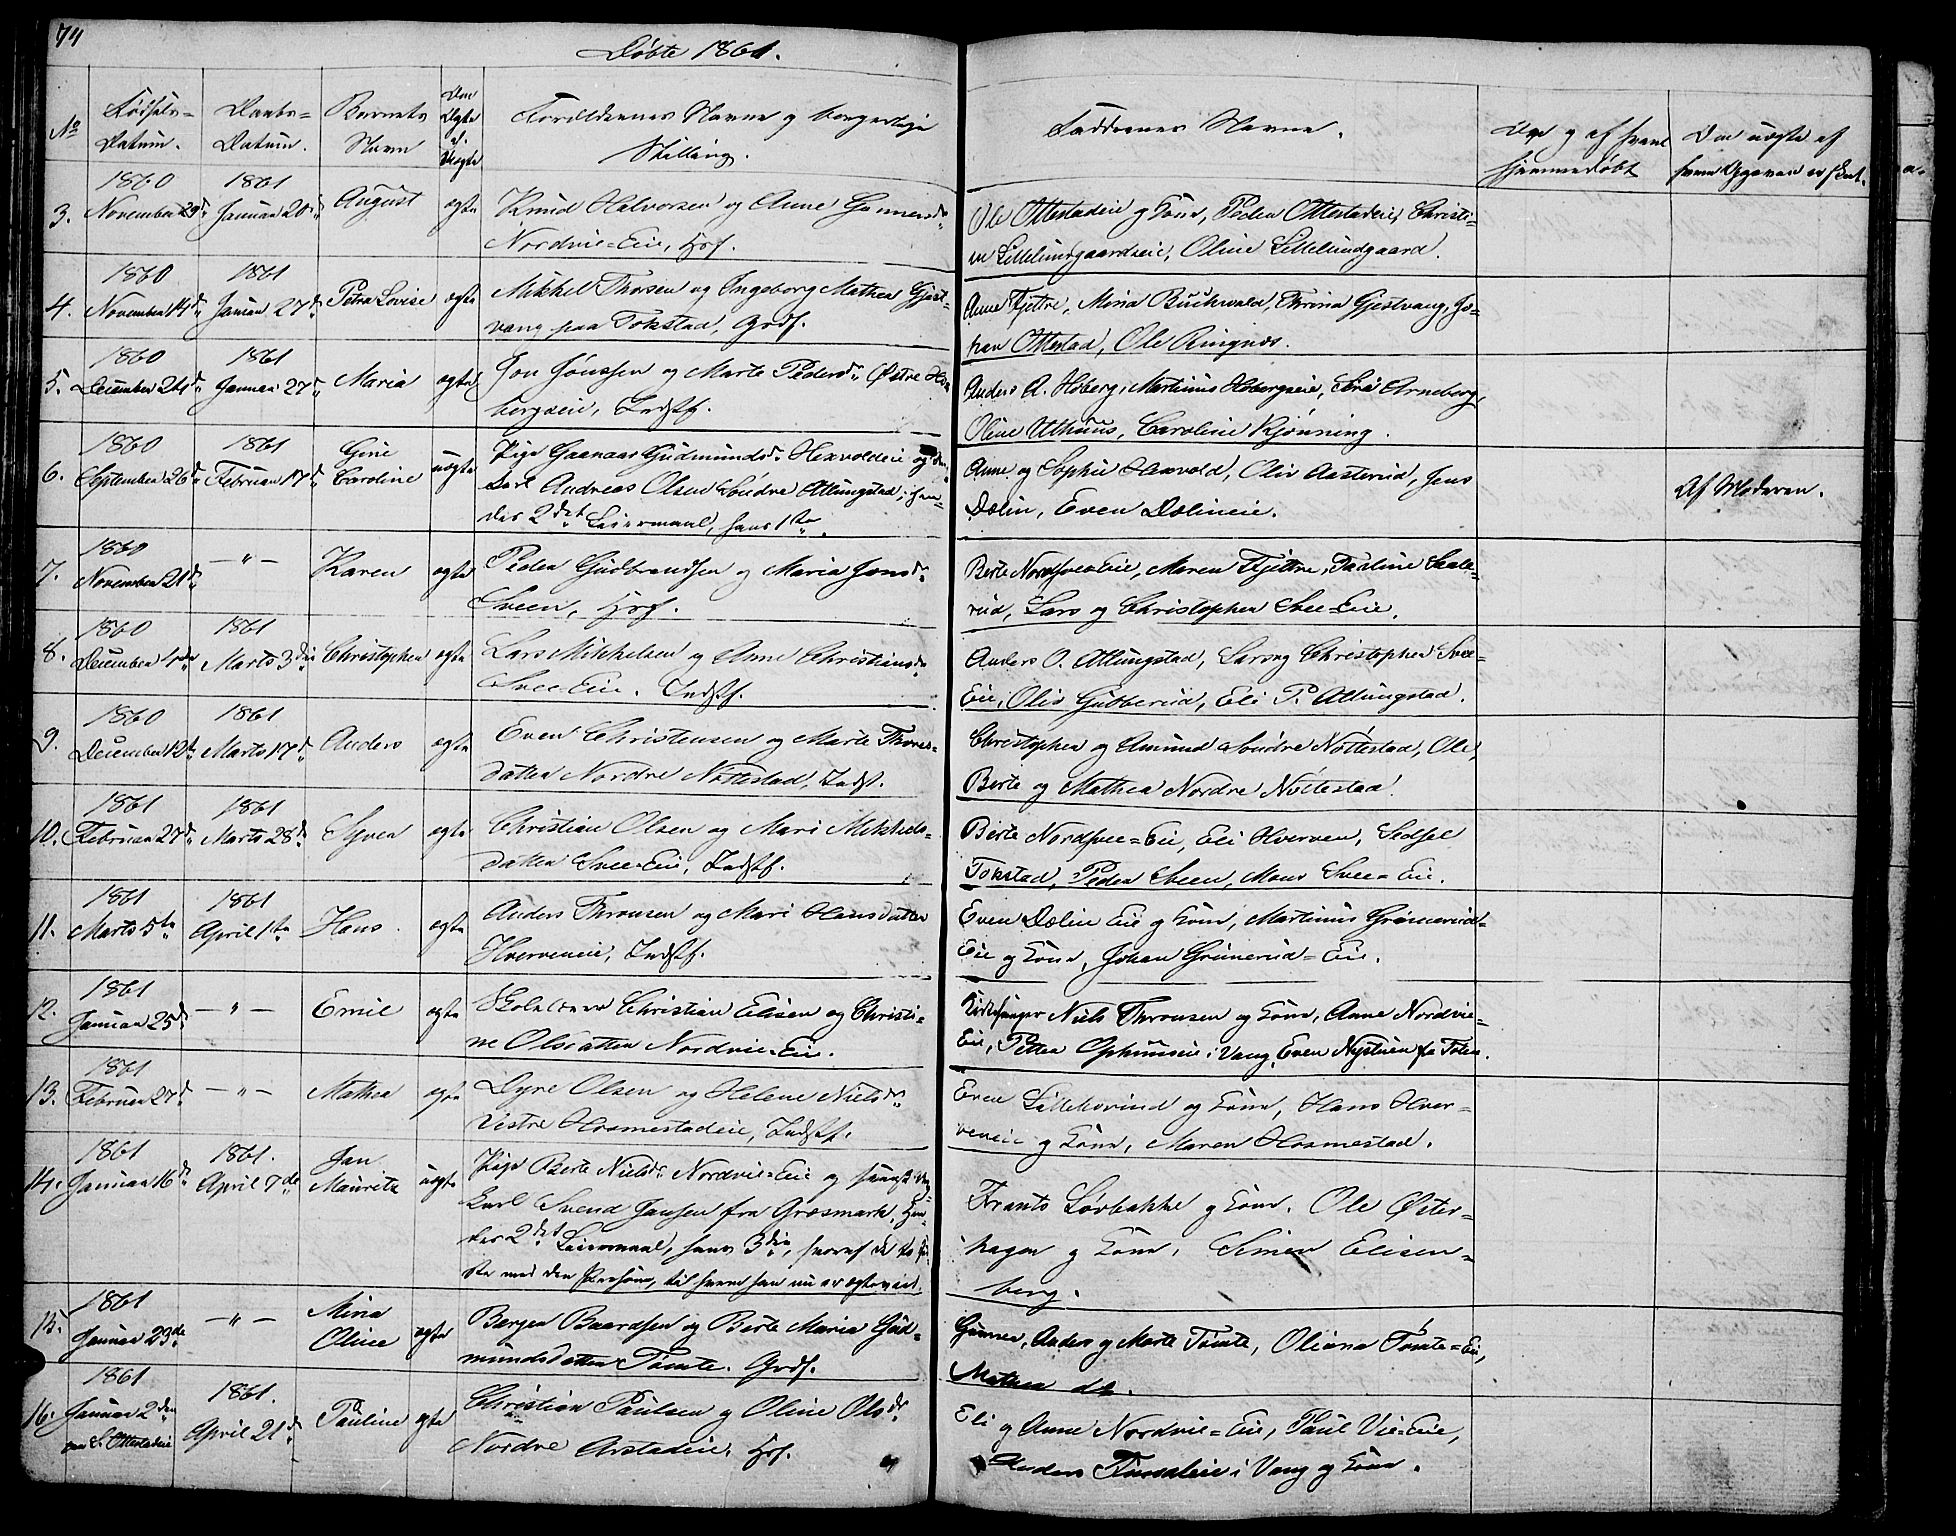 74
Døbte 1861.
No
Fødsels-Datum.
Daabs-Datum.
Barnets Navn
Om Ægte el. Uægte
Forældrenes Navne og borgerlige Stilling.
Faddernes Navne.
Om og af hvem hjemmedøbt
Om uægte af hvem Opgaven er skeet.
3.
1860
November 29d
1861
Januar 20d
August
ægte
Knud Halvorsen og Anne Gunnersdr
Nordvie-Eie, Hsf.
Ole Ottestadeie og Kone, Peder Ottestadeie, Christi-
ne Lillelundgaardseie, Oline Lillelundgaard.
4.
1860
November 14d
1861
Januar 27d
Petra Lovise
ægte
Mikkel Thorsen og Ingeborg Mathea Gjest-
vang paa Tokstad, Grdf.
Anne Fjettre, Mina Buchwald, Thrina Gjestvang, Jo-
han Ottestad, Ole Ringnes.
5.
1860
December 24d
1861
Januar 27d
Maria
ægte
Jon Jonssen og Marte Pedersdr Østre Ho-
bergseie, Indstf.
Anders A. Hoberg, Martinus Hobergseie, Arneberg,
Oline Uthuus, Caroline Kjønning.
6.
1860
September 26d
1861
Februar 17d
Gine
Caroline
uægte
Pige Gunnar Gudmundsdr Hexvoldeie og Ung-
karl Andreas Olsen Søndre Atlungstad, hen-
des 2det Leiermaal, hans 1ste.
Anne og Sophie Hexvold, Oliv Aasterud, Jens
Dælin, Even Dælineie.
Af Moderen.
7.
1860
November 21d
— " —
Karen
ægte
Peder Gudbrandsen og Maria Jensdr
Sveen, Hsf.
Berte Nordsvee-Eie, Maren Fjettre, Pauline Sæle-
rud, Lars og Christopher Svee-Eie.
8.
1860
December 4de
1861
Marts 3die
Christopher
ægte
Lars Mikkelsen og Anne Christiansdr
Svee-Eie. Indstf.
Anders O. Atlungstad, Lars og Christopher Svee-
Eie, Oliv Gubberud, Eli P. Atlungstad.
9.
1860
December 12te
1861
Marts 17d
Anders
ægte
Even Christensen og Marte Thores-
datter Nordre Nøttestad, Indst.
Christopher og Amund Søndre Nøttestad, Ole,
Berte og Mathea Nordre Nøttestad.
10.
1861
Februar 27d
1861
Marts 28d
Syver
ægte
Christian Olsen og Mari Mikkels-
datter Svee-Eie, Indstf.
Berte Nordsvee-Eie, Eli Hverven, Sedsel
Tokstad, Peder Sveen, Mons Svee-Eie.
11.
1861
Marts 5te
1861
April 1ste
Hans
ægte
Anders Thronsen og Mari Hansdatter
Hverveneie, Indstf.
Even Dælin Eie og Kone, Martinus Grimerud-
Eie og Kone, Johan Grimerud-Eie.
12.
1861
Januar 25d
— " —
Emil
ægte
Skolelærer Christian Elisen og Christi-
ne Olsdatter Nordvie-Eie.
Kirkesanger Niels Thronsen og Kone, Anne Nordvie-
Eie, Petter Ophuuseie i Vang, Even Nystuen fra Toten.
13.
1861
Februar 27d
— " —
Mathea
ægte
Dyre Olsen og Helene Nielsdr
Vestre Hosmestadeie, Indstf.
Even Lillehovind og Kone, Hans Hver-
veneie og Kone, Maren Hosmestad.
14.
1861
Januar 16d
1861.
April 7de
Jan
Mauritz
uægte
Pige Berte Nielsdr Nordvie-Eie og svensk Ung-
karl Svend Jansen fra Græsmark, hen-
des 2det Leiermaal, hans 3die, hvoraf de to før-
ste med den Person, til hvem han nu er ægteviet.
Frants Løvbakke og Kone, Ole Øster-
hagen og Kone, Simen Elisen-
berg.
15.
1861
Januar 29de
— " —
Mina
Oline
ægte
Børger Baardsen og Berte Maria Gud-
mundsdatter Tomte. Grdf.
Gunner, Anders og Marte Tomte, Oliana Tomte-Eie,
Mathea do.
16.
1861
Januar 2den
1861.
April 21d
Pauline
ægte
Christian Paulsen og Oline Olsdr
Nordre Arstadeie, Hsf.
Eli og Anne Nordvie-Eie, Paul Vie-Eie,
Anders Furuseteie i Vang og Kone.